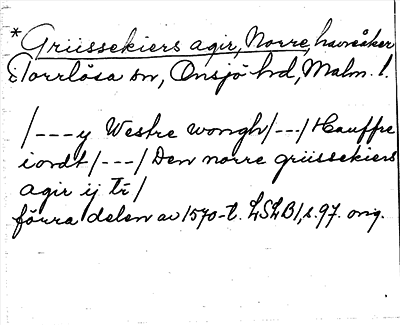 *Griissekiers agir, Norre, havreåker
Torrlösa sn, Onsjö hd, Malm. l.
/---y Westre wongh/---/Hauffre
iordt/---/Den norre griissekiers
agir ij Tr/
förra delen av 1570-t. LSLB1, s. 97. orig.